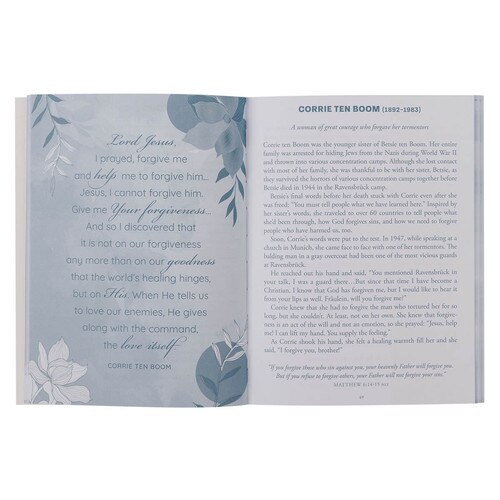 Lord Jesus,
I prayed, forgive me
and help me to forgive him...
Jesus, I cannot forgive him.
Give me Your forgiveness...
And so I discovered that
it is not on our forgiveness
any more than on our goodness
that the world's healing hinges,
but on His. When He tells us
to love our enemies, He gives
along with the command,
the love itself.
CORRIE TEN BOOM
CORRIE TEN BOOM (1892–1983)
A woman of great courage who forgave her tormentors
Corrie ten Boom was the younger sister of Betsie ten Boom. Her entire
family was arrested for hiding Jews from the Nazis during World War II
and thrown into various concentration camps. Although she lost contact
with most of her family, she was thankful to be with her sister, Betsie, as
they survived in various concentration camps together before
Betsie died in 1944 in the Ravensbrück camp.
Betsie's final words before her death stuck with Corrie even after she
was freed: "You must tell people what we have learned here." Inspired by
her sister's words, she traveled to over 60 countries to tell people what
she'd been through, how God forgives sin, and how we need to forgive
people who have harmed us, too.
Soon, Corrie's words were put to the test. In 1947, while speaking at a
church in Munich, she came face to face with one of her tormentors. The
balding man in a gray overcoat had been one of the most vicious guards
at Ravensbrück.
He reached out his hand and said, "You mentioned Ravensbrück in
your talk, I was a guard there...But since that time I have become a
Christian. I know that God has forgiven me, but I would like to hear it
from your lips as well. Fräulein, will you forgive me?"
Corrie knew she had to forgive the man who tortured her for so
long, but she couldn't. At least, not on her own. She knew that forgive-
ness is an act of the will and not an emotion, so she prayed: "Jesus, help
me! I can lift my hand. You supply the feeling."
As Corrie shook his hand, she felt a healing warmth fill her and she
said, "I forgive you, brother!"
"If you forgive those who sin against you, your heavenly Father will forgive you.
But if you refuse to forgive others, your Father will not forgive your sins."
MATTHEW 6:14-15 NLT